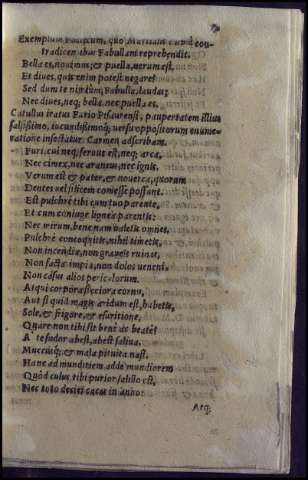 Exemplum Poëticum, quo Martialis cum à con-
tradicentibus Fabullam reprehendit.
Bella es, nouimus, & puella, uerum est,
Et diues, quis enim potest negare?
Sed dum te nimium, Fabulla, laudas,
Nec diues, neq; bella, nec puella es.
Catullus iratus Furio Pisaurensi, paupertatem illius
falsissimo, iucundissimoq́; uersu oppositorum enume-
ratione insectatur. Carmen adscribam.
Furi, cui neq; seruus est, neq; arca,
Nec cimex, nec araneus, nec ignis,
Verum est & pater, & nouerca, quorum
Dentes uel silicem comesse possunt.
Est pulchrè tibi cum tuo parente,
Et cum coniuge lignea parentis:
Nec mirum, bene nam ualetis omnes,
Pulchrè concoquitis, nihil timetis,
Non incendia, non graueis ruinas,
Non facta impia, non dolos ueneni,
Non casus alios periculorum.
Atqui corpora sicciora cornu,
Aut si quid magis aridum est, habetis,
Sole, & frigore, & esuritione,
Quare non tibi sit bene ac beatè?
A te sudor abest, abest saliua,
Muccusq́;, & mala pituita nasi.
Hanc ad munditiem adde mundiorem
Quòd culus tibi purior salillo est,
Nec toto decies cacas in anno.
Atq;